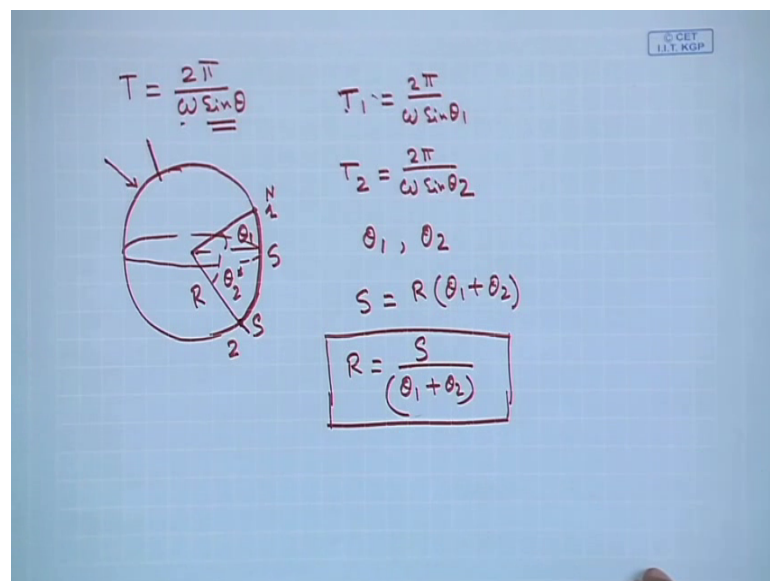 © CET
I.I.T. KGP
T = 2π / ω sinθ
T₁ = 2π / ω sinθ₁
T₂ = 2π / ω sinθ₂
θ₁, θ₂
S = R(θ₁+θ₂)
R = S / (θ₁+θ₂)
N
1
θ₁
S
θ₂
R
S
2